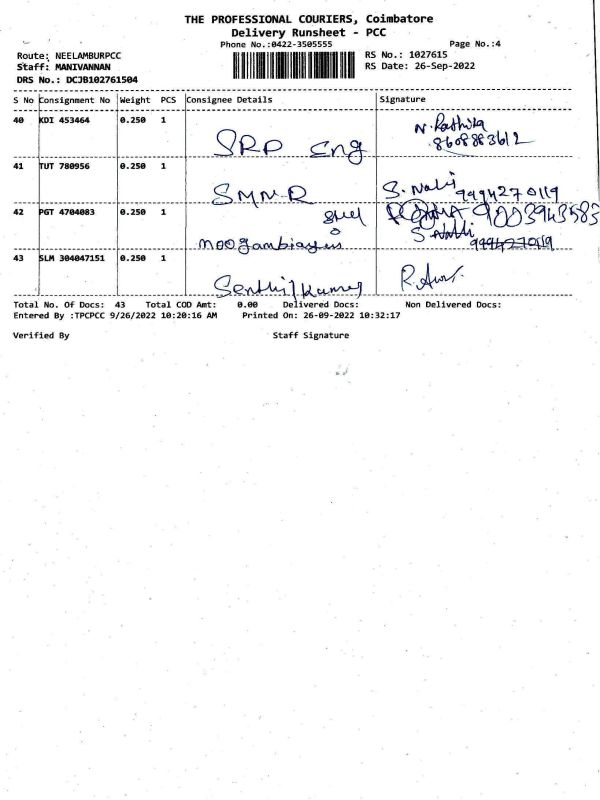 THE PROFESSIONAL COURIERS, Coimbatore
Delivery Runsheet - PCC
Phone No.:0422-3505555 Page No.:4
Route: NEELAMBURPCC RS No.: 1027615
Staff: MANIVANNAN RS Date: 26-Sep-2022
DRS No.: DCJB102761504
S No Consignment No Weight PCS Consignee Details Signature
40 KDI 453464 0.250 1 SRP Eng N. Rathika
8608883612
41 TUT 780956 0.250 1 SMM.R S. Nalli 9994270119
42 PGT 4704083 0.250 1 Steel 9003943583
Moogambigai S Nalli
43 SLM 304047151 0.250 1 Senthilkumar R.
Total No. Of Docs: 43 Total COD Amt: 0.00 Delivered Docs: Non Delivered Docs:
Entered By :TPCPCC 9/26/2022 10:20:16 AM Printed On: 26-09-2022 10:32:17
Verified By Staff Signature